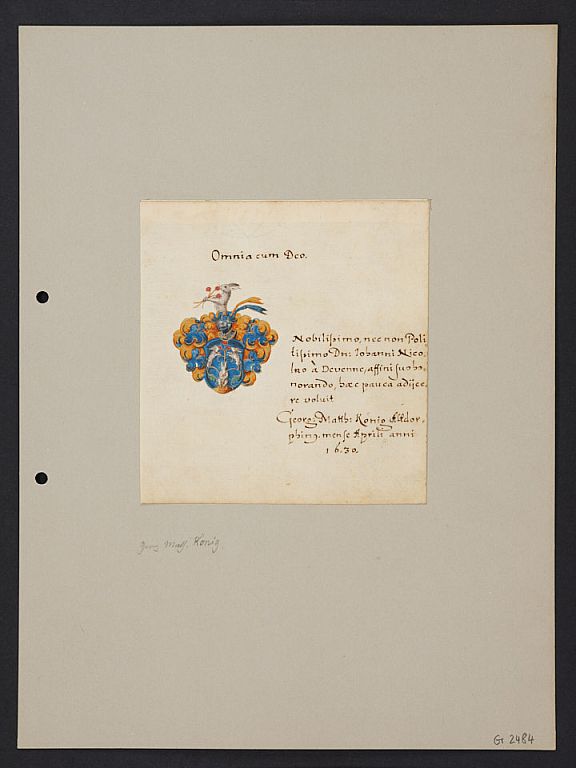 Omnia cum Deo.
Nobilißimo, nec non Poli
tißimo Dn: Iohanni Nico,
lao à Devenne, affini suo ho,
norando, hæc pauca adijce,
re voluit
Georg: Matth: König Altdor,
phinq. mense Aprili anni
1630.
König.
Gr 2484